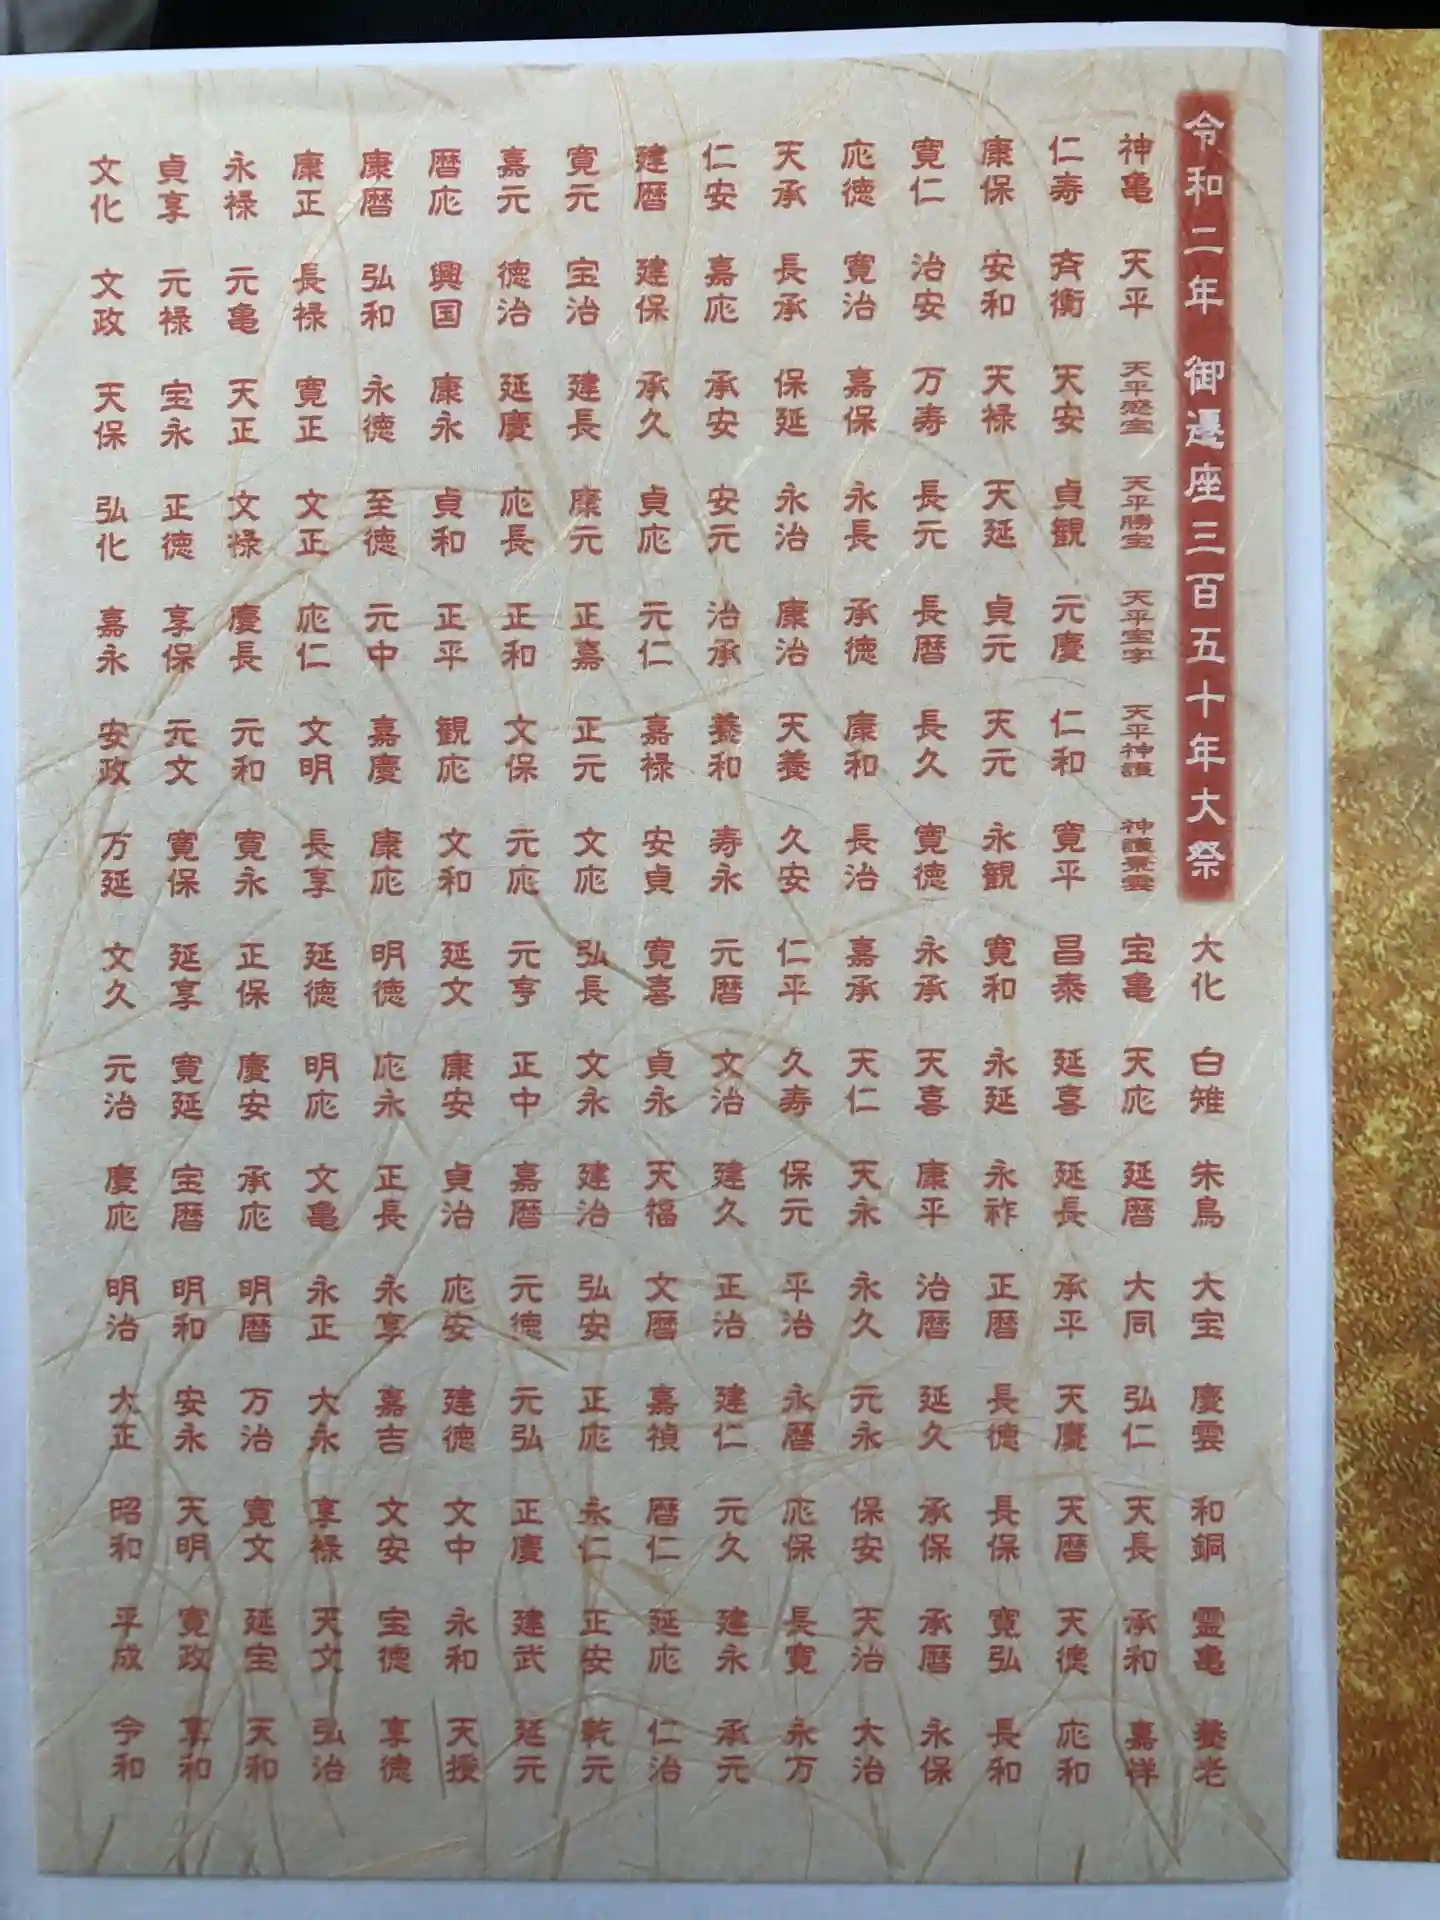 令和二年 御遷座三百五十年大祭 大化 白雉 朱鳥 大宝 慶雲 和銅 霊亀 養老
神亀 天平 天平感宝 天平勝宝 天平宝字 天平神護 神護景雲 宝亀 天応 延暦 大同 弘仁 天長 承和 嘉祥
仁寿 斉衡 天安 貞観 元慶 仁和 寛平 昌泰 延喜 延長 承平 天慶 天暦 天徳 応和
康保 安和 天禄 天延 貞元 天元 永観 寛和 永延 永祚 正暦 長徳 長保 寛弘 長和
寛仁 治安 万寿 長元 長暦 長久 寛徳 永承 天喜 康平 治暦 延久 承保 承暦 永保
応徳 寛治 嘉保 永長 承徳 康和 長治 嘉承 天仁 天永 永久 元永 保安 天治 大治
天承 長承 保延 永治 康治 天養 久安 仁平 久寿 保元 平治 永暦 応保 長寛 永万
仁安 嘉応 承安 安元 治承 養和 寿永 元暦 文治 建久 正治 建仁 元久 建永 承元
建暦 建保 承久 貞応 元仁 嘉禄 安貞 寛喜 貞永 天福 文暦 嘉禎 暦仁 延応 仁治
寛元 宝治 建長 康元 正嘉 正元 文応 弘長 文永 建治 弘安 正応 永仁 正安 乾元
嘉元 徳治 延慶 応長 正和 文保 元応 元亨 正中 嘉暦 元徳 元弘 正慶 建武 延元
暦応 興国 康永 貞和 正平 観応 文和 延文 康安 貞治 応安 建徳 文中 永和 天授
康暦 弘和 永徳 至徳 元中 嘉慶 康応 明徳 応永 正長 永享 嘉吉 文安 宝徳 享徳
康正 長禄 寛正 文正 応仁 文明 長享 延徳 明応 文亀 永正 大永 享禄 天文 弘治
永禄 元亀 天正 文禄 慶長 元和 寛永 正保 慶安 承応 明暦 万治 寛文 延宝 天和
貞享 元禄 宝永 正徳 享保 元文 寛保 延享 寛延 宝暦 明和 安永 天明 寛政 享和
文化 文政 天保 弘化 嘉永 安政 万延 文久 元治 慶応 明治 大正 昭和 平成 令和